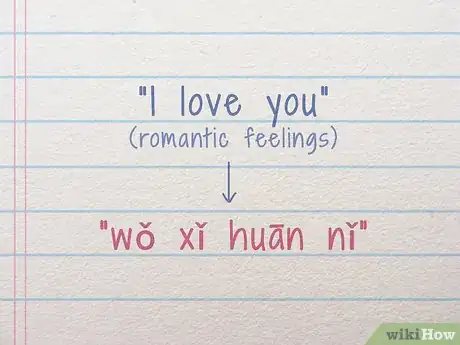 "I love you"
(romantic feelings)
"wǒ xǐ huān nǐ"
wikiHow